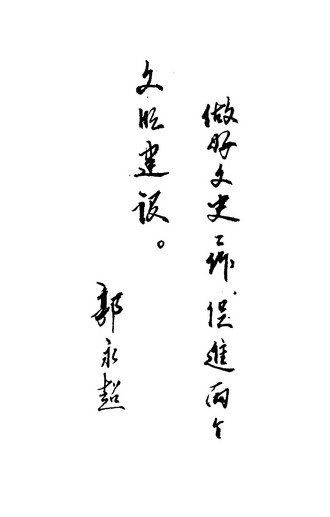 做好文史工作，促進两个
文明建设。
郭永超